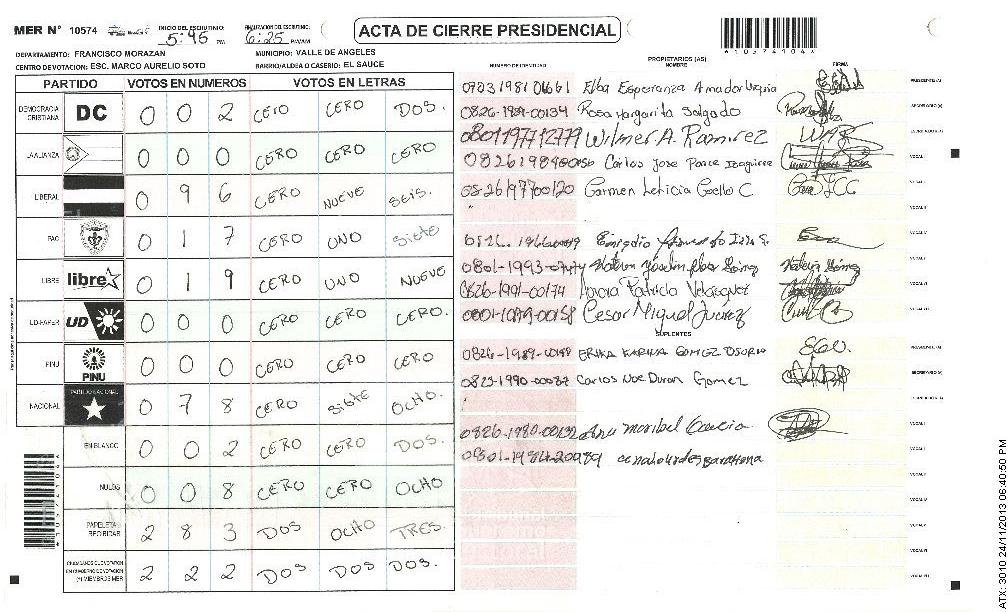 MER N° 10574 INICIO DEL ESCRUTINIO: 5:45 PM FINALIZACION DEL ESCRUTINIO: 6:25 PM/AM ACTA DE CIERRE PRESIDENCIAL
DEPARTAMENTO: FRANCISCO MORAZAN MUNICIPIO: VALLE DE ANGELES
CENTRO DE VOTACION: ESC. MARCO AURELIO SOTO BARRIO/ALDEA O CASERIO: EL SAUCE
NUMERO DE IDENTIDAD PROPIETARIOS (AS) NOMBRE FIRMA
PARTIDO VOTOS EN NUMEROS VOTOS EN LETRAS
DEMOCRACIA CRISTIANA DC 0 0 2 CERO CERO DOS.
LA ALIANZA 0 0 0 CERO CERO CERO
LIBERAL 0 9 6 CERO NUEVE SEIS.
PAC 0 1 7 CERO UNO Siete
LIBRE libre 0 1 9 CERO UNO NUEVE
UD-FAPER UD 0 0 0 CERO CERO CERO.
PINU PINU 0 0 0 CERO CERO CERO
NACIONAL PARTIDO NACIONAL 0 7 8 CERO SIETE OCHO.
EN BLANCO 0 0 2 CERO CERO DOS.
NULOS 0 0 8 CERO CERO OCHO
PAPELETAS RECIBIDAS 2 8 3 DOS OCHO TRES.
CIUDADANOS QUE VOTARON EN CUADERNO DE VOTACION (+) MIEMBROS MER 2 2 2 DOS DOS DOS.
Elba Esperanza Amador PRESIDENTE(A)
0826-1989-00134 Rosa Margarita Salgado SECRETARIO(A)
Wilmer A. Ramirez ESCRUTADOR(A)
Carlos Jose Ponce VOCAL I
Carmen Leticia Coello C VOCAL II
VOCAL III
0826- VOCAL IV
0801-1993- VOCAL V
0826-1991-00174 Patricia Velasquez VOCAL VI
Cesar Miguel Juarez VOCAL VII
SUPLENTES
0826-1989- ERIKA KARINA GOMEZ OSORIO PRESIDENTE(A)
Carlos Noe Duron Gomez SECRETARIO(A)
ESCRUTADOR(A)
0826-1980-00132 Ana Maribel Garcia VOCAL I
0801-1984-20989 VOCAL II
VOCAL III
VOCAL IV
VOCAL V
VOCAL VI
VOCAL VII
ATX: 3010 24/11/2013 06:40:50 PM